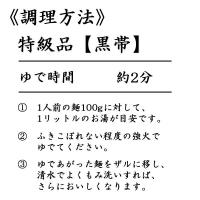 《調理方法》
特級品【黒帯】
ゆで時間 約2分
① 1人前の麺100gに対して、
1リットルのお湯が目安です。
② ふきこぼれない程度の強火で
ゆでてください。
③ ゆであがった麺をザルに移し、
清水でよくもみ洗いすれば、
さらにおいしくなります。